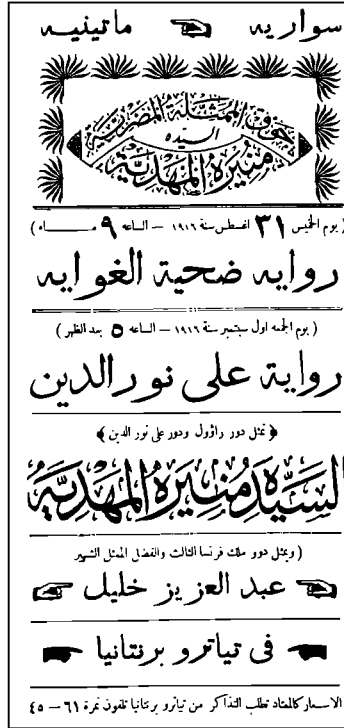 سواريه ماتينيه
جوق الممثلة المصرية
السيده
منيرة المهدية
( يوم الخميس ٣١ اغسطس سنة ١٩١٦ – الساعه ٩ مساء )
روايه ضحية الغوايه
( يوم الجمعه اول سبتمبر سنة ١٩١٦ – الساعه ٥ بعد الظهر )
رواية على نور الدين
﴿ تمثل دور راؤول ودور على نور الدين ﴾
السيدة منيرة المهدية
( ويمثل دور ملك فرنسا الثالث والفضل الممثل الشهير
عبد العزيز خليل
فى تياترو برنتانيا
الاسعار كالمعتاد تطلب التذاكر من تياترو برنتانيا تلفون نمرة ٦١ – ٤٥